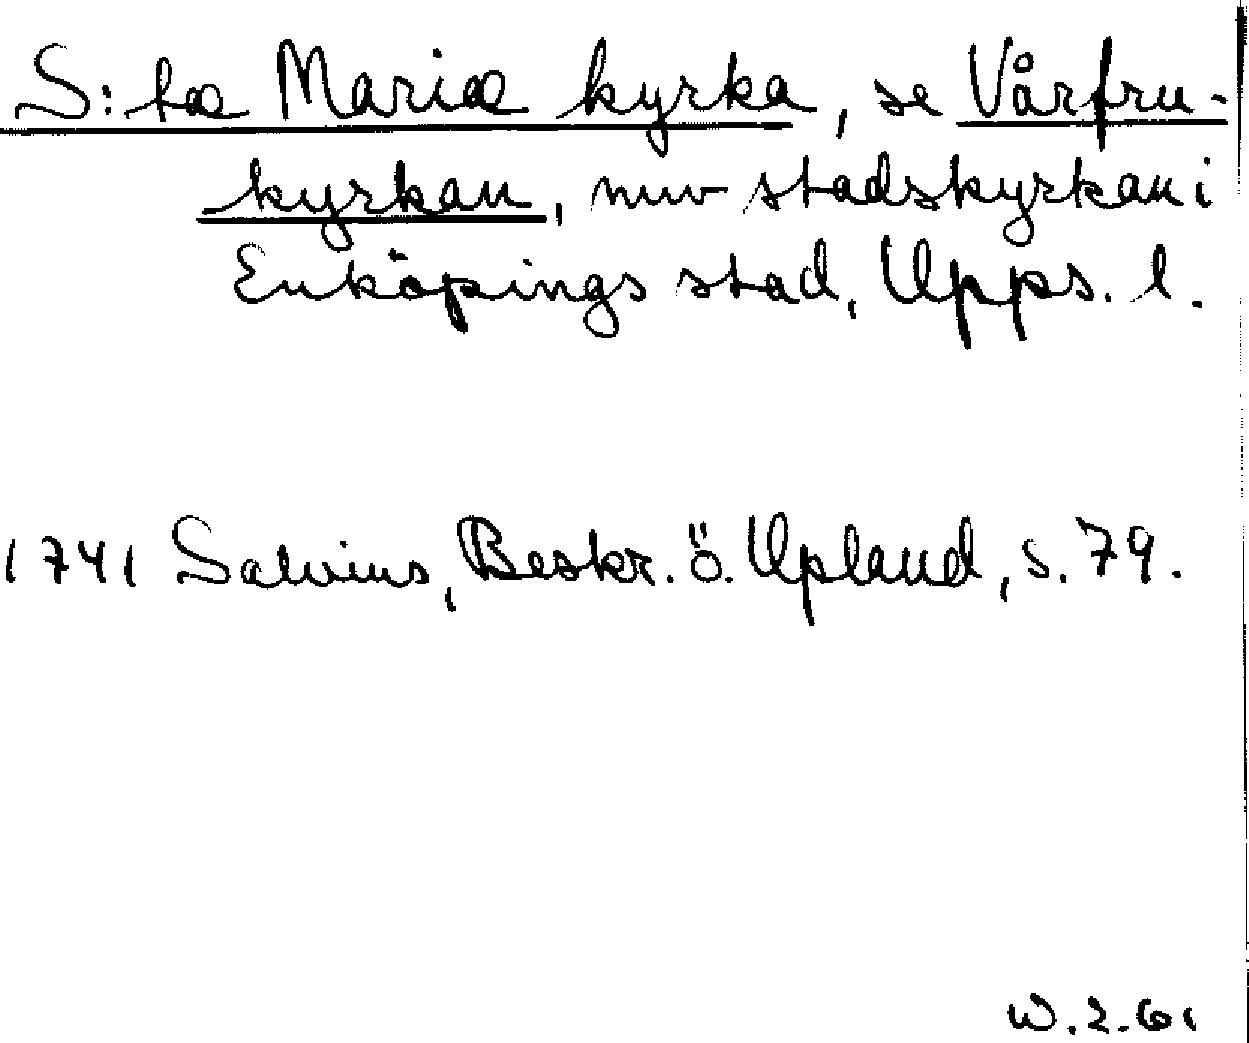 S:tæ Mariæ kyrka, se Vårfru-
kyrkan, nuv stadskyrkan i
Enköpings stad, Upps. l.
1741 Salvius, Beskr. ö. Upland, s. 79.
W. 2. 61